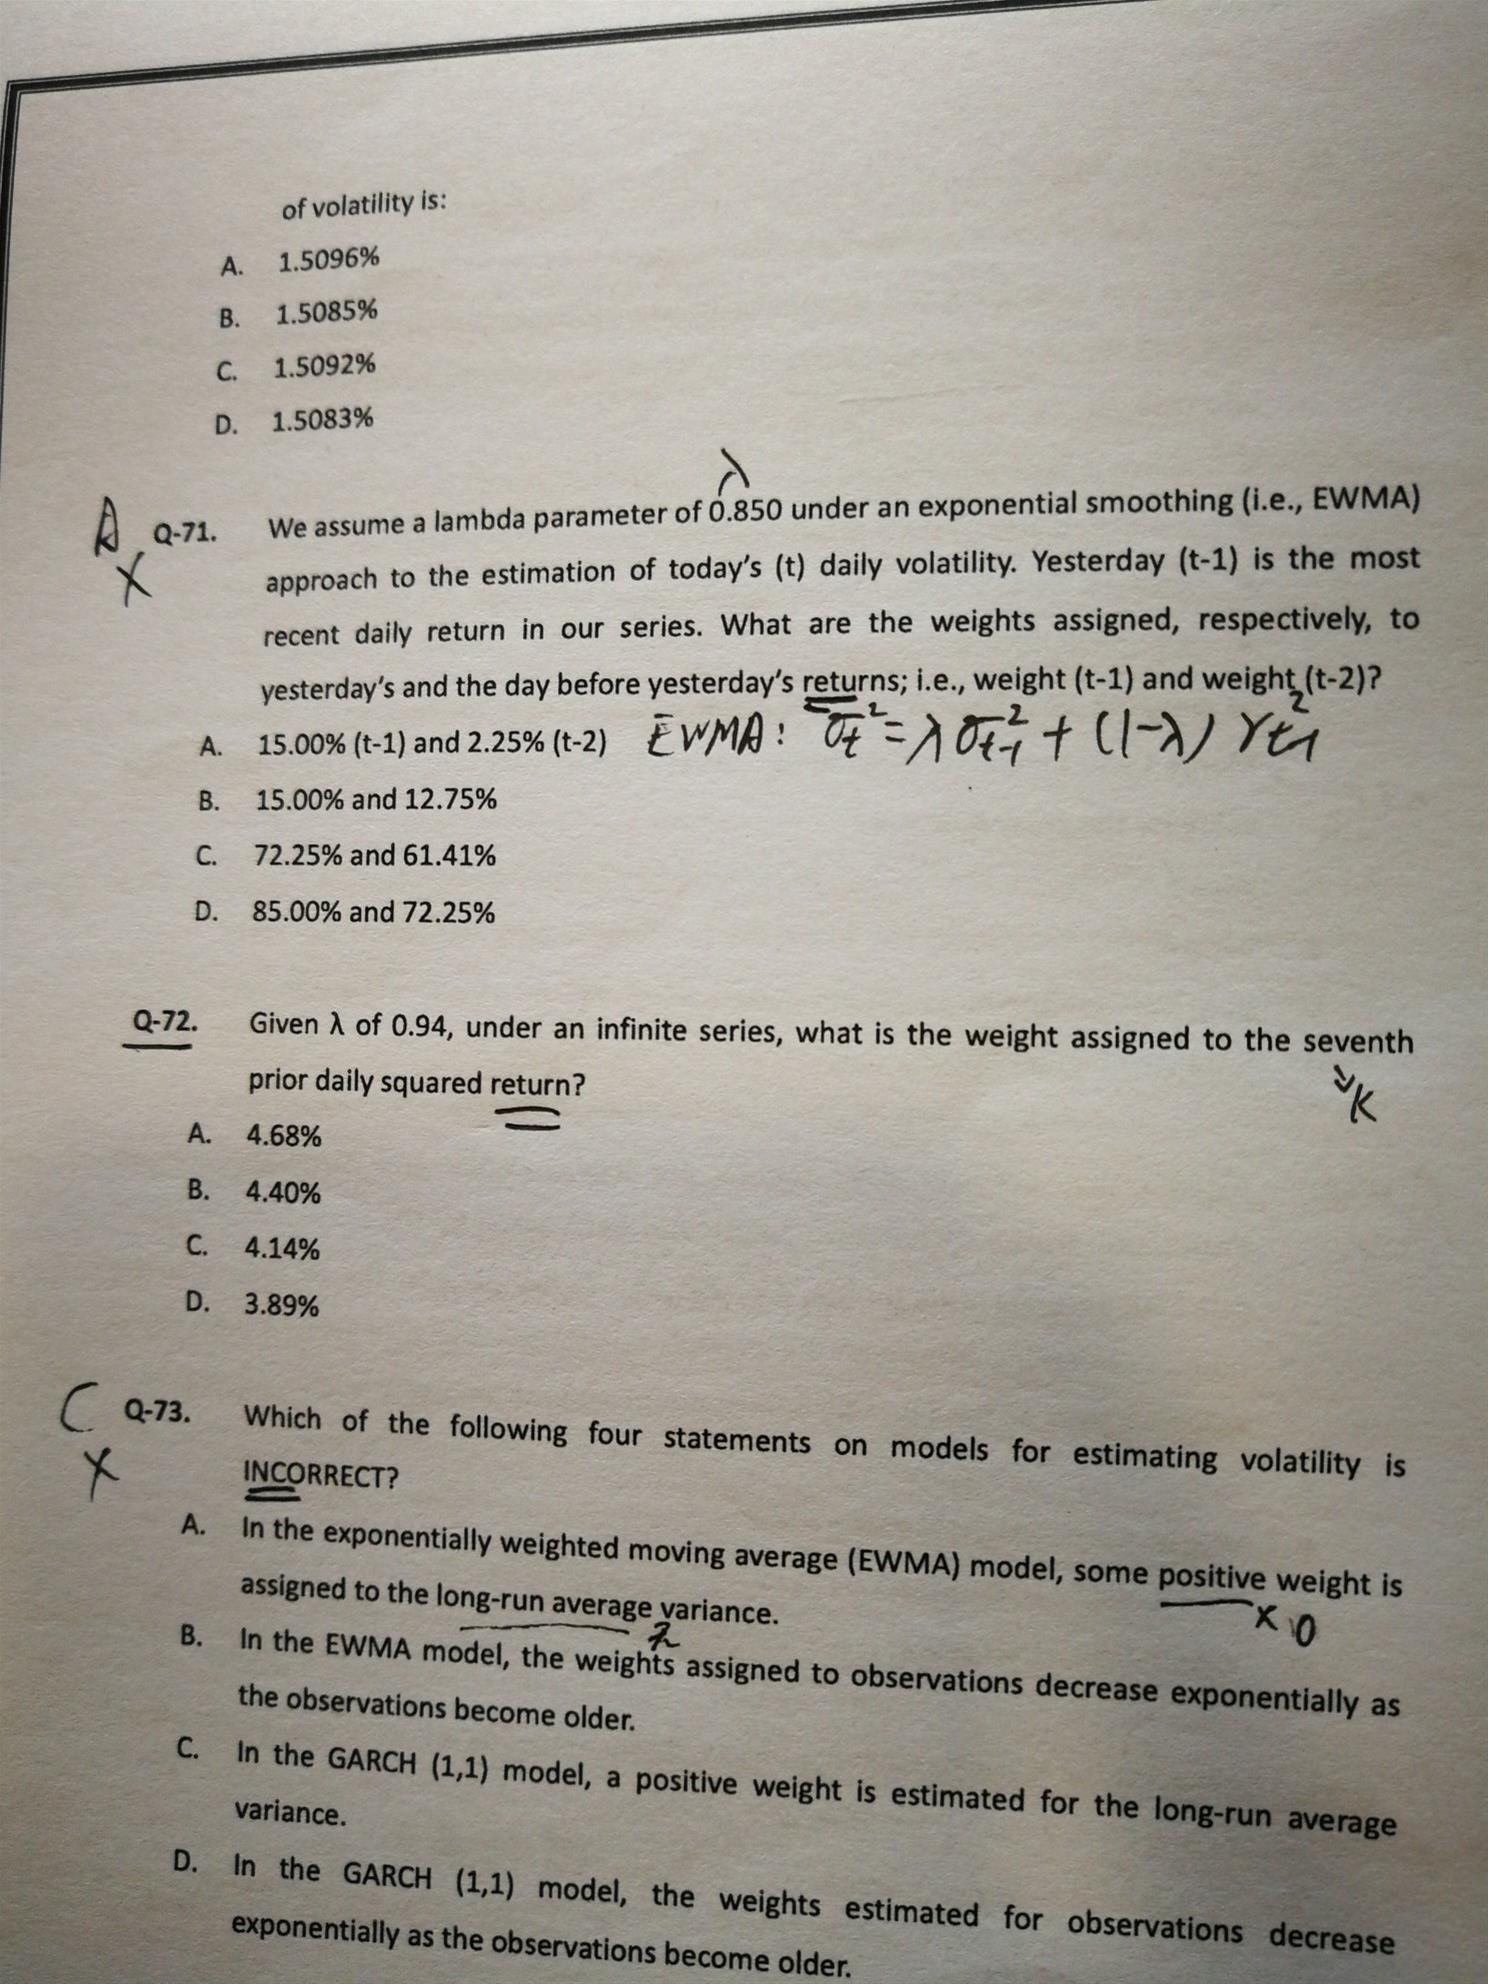 of volatility is:
A. 1.5096%
B. 1.5085%
C. 1.5092%
D. 1.5083%
λ
A Q-71. We assume a lambda parameter of 0.850 under an exponential smoothing (i.e., EWMA)
X approach to the estimation of today's (t) daily volatility. Yesterday (t-1) is the most
recent daily return in our series. What are the weights assigned, respectively, to
yesterday's and the day before yesterday's returns; i.e., weight (t-1) and weight (t-2)?
A. 15.00% (t-1) and 2.25% (t-2) EWMA: σt² = λσ²t-1 + (1-λ) r²t-1
B. 15.00% and 12.75%
C. 72.25% and 61.41%
D. 85.00% and 72.25%
Q-72. Given λ of 0.94, under an infinite series, what is the weight assigned to the seventh
prior daily squared return?
K
A. 4.68%
B. 4.40%
C. 4.14%
D. 3.89%
C Q-73. Which of the following four statements on models for estimating volatility is
X INCORRECT?
A. In the exponentially weighted moving average (EWMA) model, some positive weight is
assigned to the long-run average variance.
X 0
B. In the EWMA model, the weights assigned to observations decrease exponentially as
the observations become older.
C. In the GARCH (1,1) model, a positive weight is estimated for the long-run average
variance.
D. In the GARCH (1,1) model, the weights estimated for observations decrease
exponentially as the observations become older.